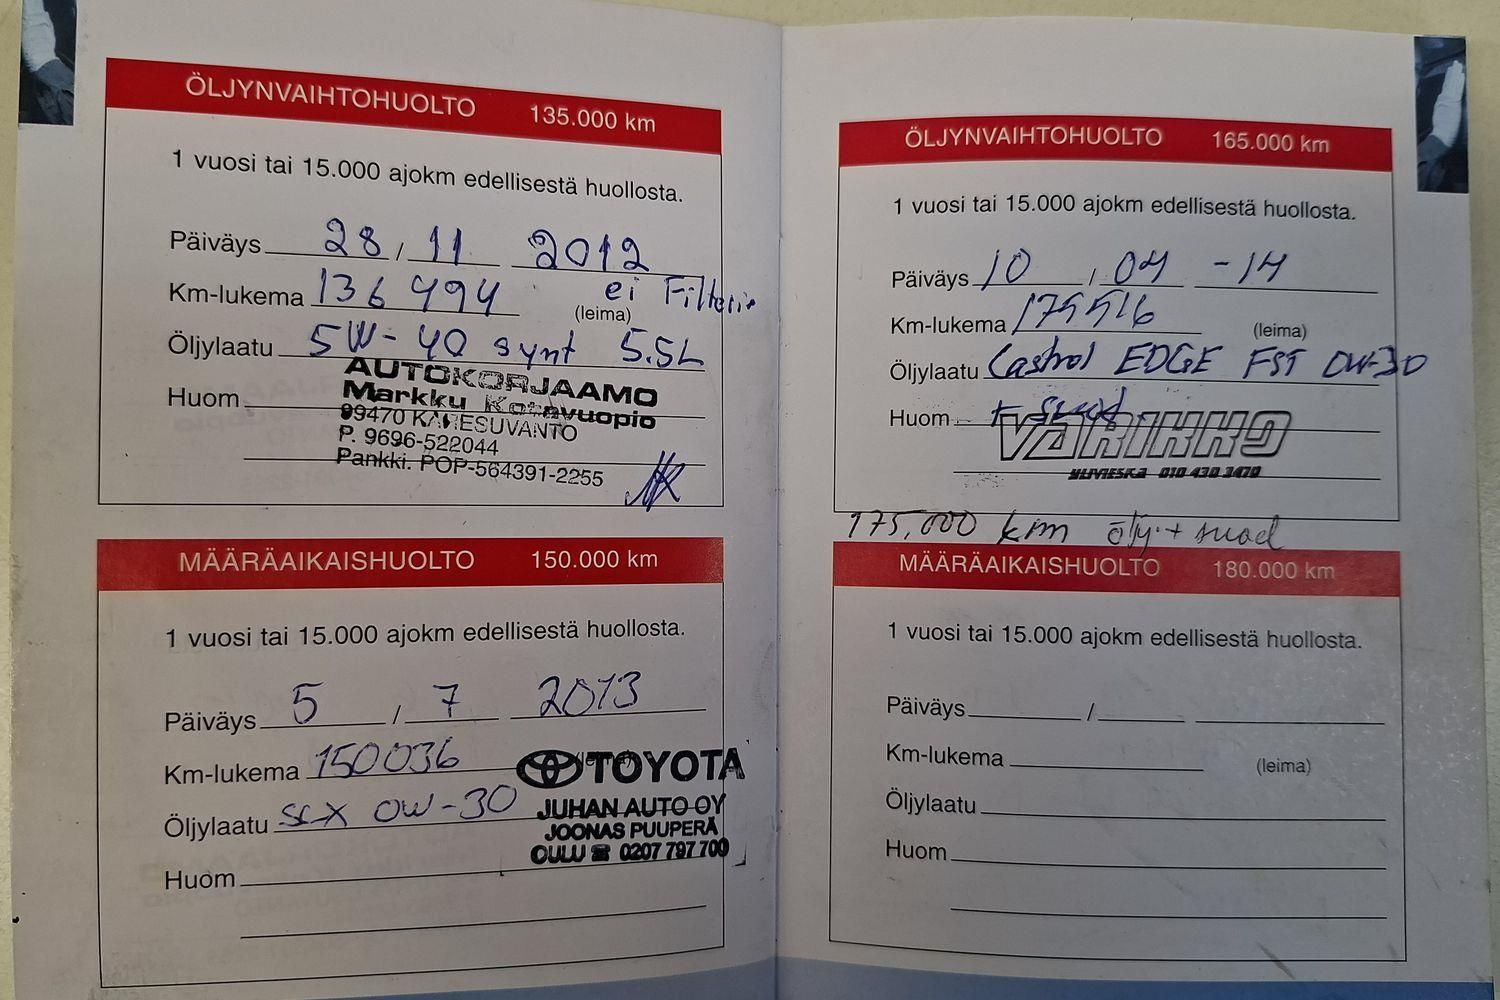 ÖLJYNVAIHTOHUOLTO 135.000 km
1 vuosi tai 15.000 ajokm edellisestä huollosta.
Päiväys 28 / 11 2012
Km-lukema 136 494 ei Filteriä
(leima)
Öljylaatu 5W-40 synt 5.5L
Huom
AUTOKORJAAMO
Markku Kotavuopio
99470 KARESUVANTO
P. 9696-522044
Pankki. POP-564391-2255
MÄÄRÄAIKAISHUOLTO 150.000 km
1 vuosi tai 15.000 ajokm edellisestä huollosta.
Päiväys 5 / 7 2013
Km-lukema 150036 (leima)
Öljylaatu SLX 0W-30
Huom
TOYOTA
JUHAN AUTO OY
JOONAS PUUPERÄ
OULU ☎ 0207 797 700
ÖLJYNVAIHTOHUOLTO 165.000 km
1 vuosi tai 15.000 ajokm edellisestä huollosta.
Päiväys 10 / 04 -14
Km-lukema 175516 (leima)
Öljylaatu Castrol EDGE FST 0W-30
Huom + suod.
VARIKKO
YLIVIESKA 010 430 3470
175,000 km öljy + suod
MÄÄRÄAIKAISHUOLTO 180.000 km
1 vuosi tai 15.000 ajokm edellisestä huollosta.
Päiväys /
Km-lukema (leima)
Öljylaatu
Huom